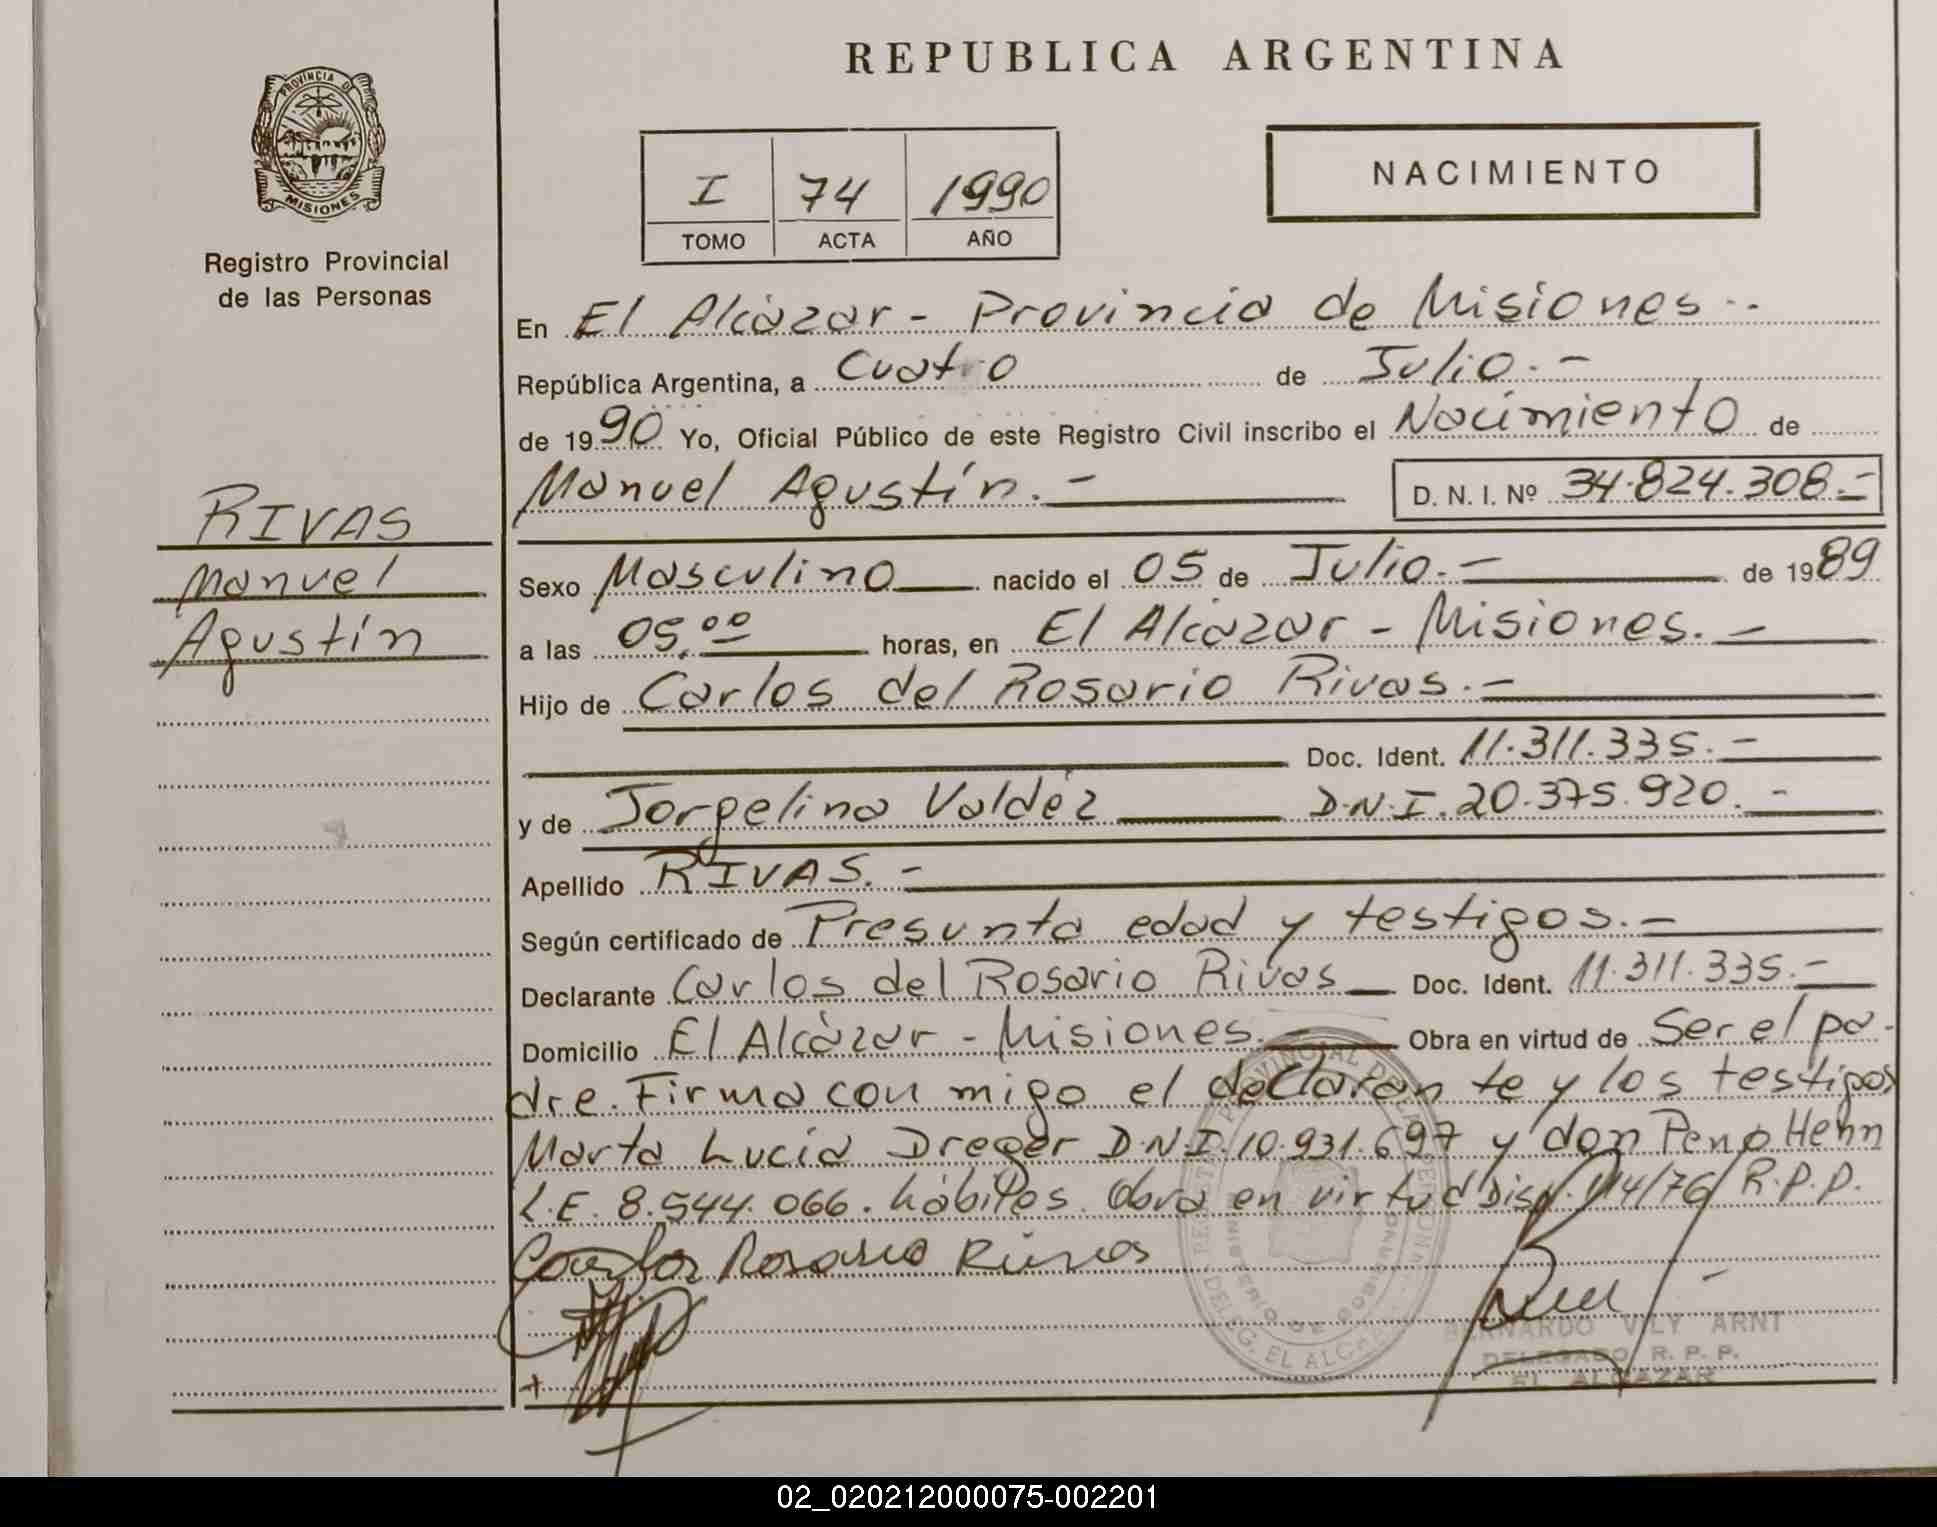 REPUBLICA ARGENTINA
PROVINCIA DE
MISIONES
Registro Provincial
de las Personas
I 74 1990
TOMO ACTA AÑO
NACIMIENTO
En El Alcázar - Provincia de Misiones.-
República Argentina, a Cuatro de Julio.-
de 1990 Yo, Oficial Público de este Registro Civil inscribo el Nacimiento de
Manuel Agustín.- D. N. I. Nº 34.824.308.-
RIVAS
Manuel
Agustín
Sexo Masculino nacido el 05 de Julio.- de 1989
a las 05.00 horas, en El Alcázar - Misiones.-
Hijo de Carlos del Rosario Rivas.-
Doc. Ident. 11.311.335.-
y de Jorgelina Valdéz D.N.I. 20.375.920.-
Apellido RIVAS.-
Según certificado de Presunta edad y testigos.-
Declarante Carlos del Rosario Rivas Doc. Ident. 11.311.335.-
Domicilio El Alcázar - Misiones.- Obra en virtud de Ser el pa-
dre. Firma con migo el declarante y los testigos
Marta Lucía Dreger D.N.I. 10.931.697 y don Henn
L.E. 8.544.066. hábiles. Obra en virtud Disp. 114/76 R.P.P.
Carlos Rosario Rivas
BERNARDO VILY ARNT
DELEGADO R. P. P.
EL ALCAZAR
02_020212000075-002201